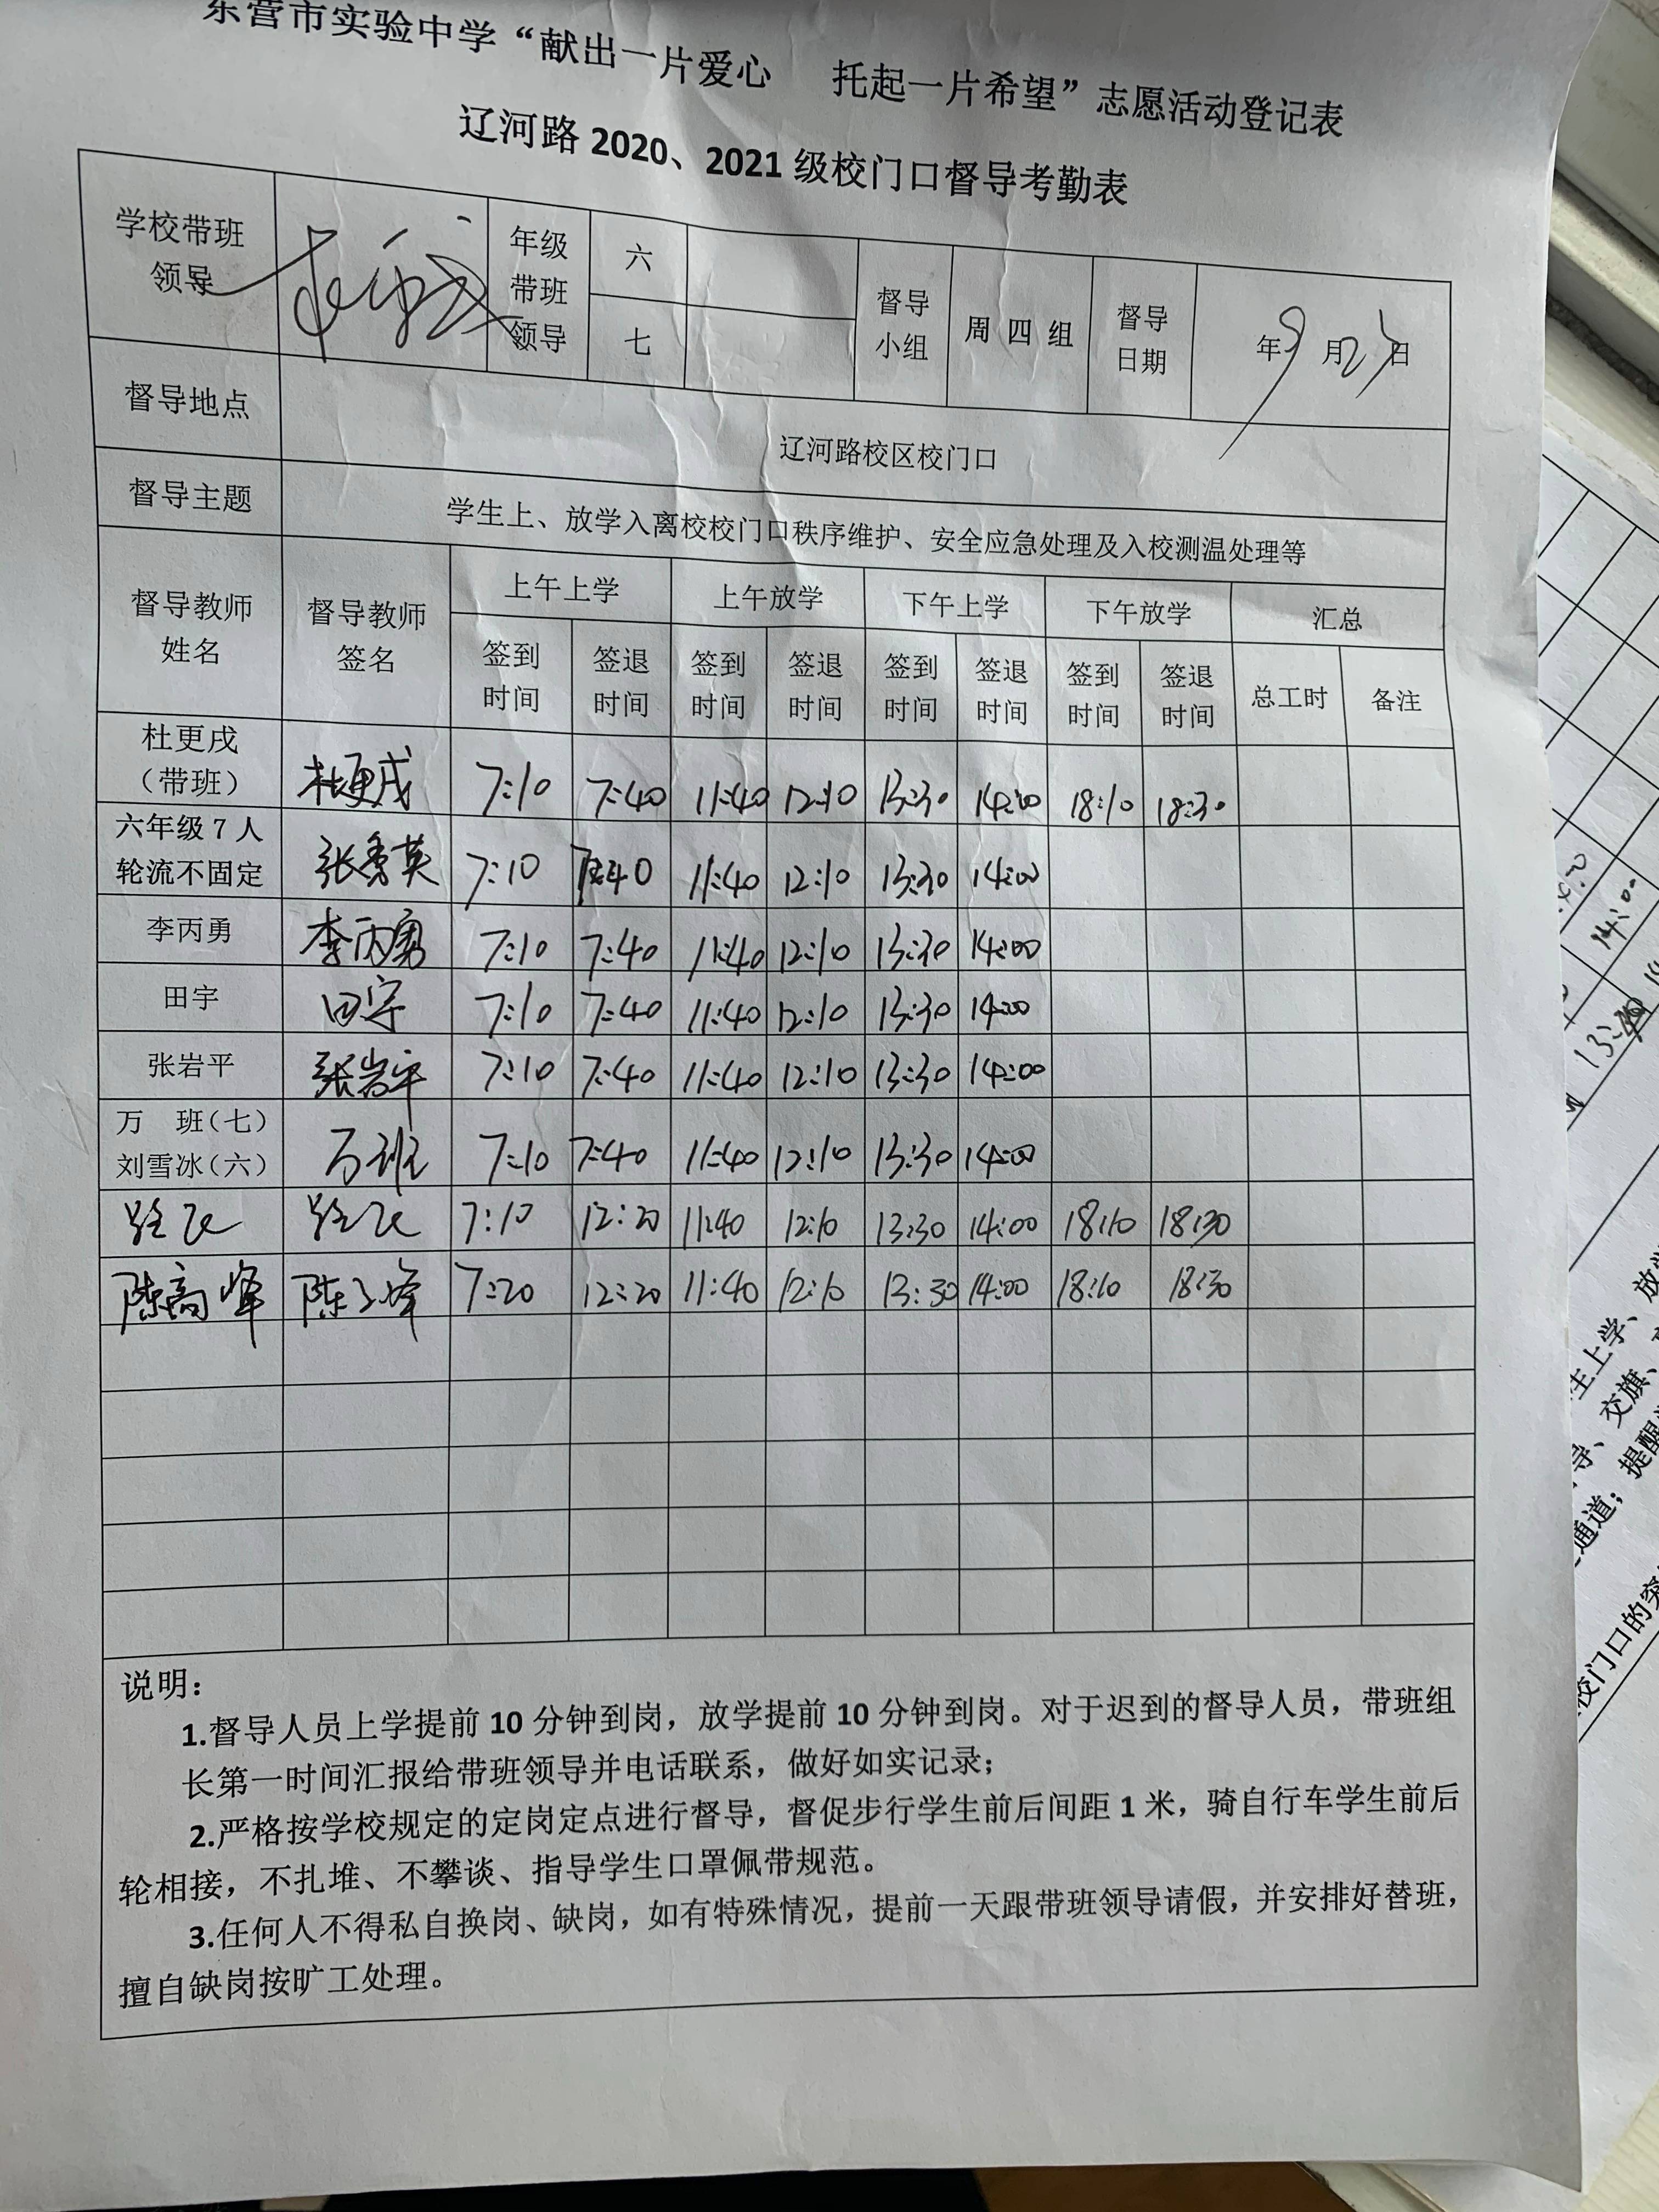 东营市实验中学“献出一片爱心 托起一片希望”志愿活动登记表
辽河路 2020、2021 级校门口督导考勤表
学校带班领导 年级带班领导 六 七 督导小组 周四组 督导日期 年9月 日
督导地点 辽河路校区校门口
督导主题 学生上、放学入离校校门口秩序维护、安全应急处理及入校测温处理等
督导教师姓名 督导教师签名 上午上学 上午放学 下午上学 下午放学 汇总
签到时间 签退时间 签到时间 签退时间 签到时间 签退时间 签到时间 签退时间 总工时 备注
杜更戌（带班） 杜更戌 7:10 7:40 11:40 12:10 13:30 14:00 18:10 18:30
六年级7人轮流不固定 张秀英 7:10 7:40 11:40 12:10 13:30 14:00
李丙勇 李丙勇 7:10 7:40 11:40 12:10 13:30 14:00
田宇 田宇 7:10 7:40 11:40 12:10 13:30 14:00
张岩平 张岩平 7:10 7:40 11:40 12:10 13:30 14:00
万 班（七）刘雪冰（六） 万班 7:10 7:40 11:40 12:10 13:30 14:00
7:10 12:20 11:40 12:10 13:30 14:00 18:10 18:30
陈高峰 陈高峰 7:20 12:20 11:40 12:10 13:30 14:00 18:10 18:30
说明：
1.督导人员上学提前 10 分钟到岗，放学提前 10 分钟到岗。对于迟到的督导人员，带班组
长第一时间汇报给带班领导并电话联系，做好如实记录；
2.严格按学校规定的定岗定点进行督导，督促步行学生前后间距 1 米，骑自行车学生前后
轮相接，不扎堆、不攀谈、指导学生口罩佩带规范。
3.任何人不得私自换岗、缺岗，如有特殊情况，提前一天跟带班领导请假，并安排好替班，
擅自缺岗按旷工处理。
14:00
生上学、放学
导、交旗、
通道；提醒
校门口的突